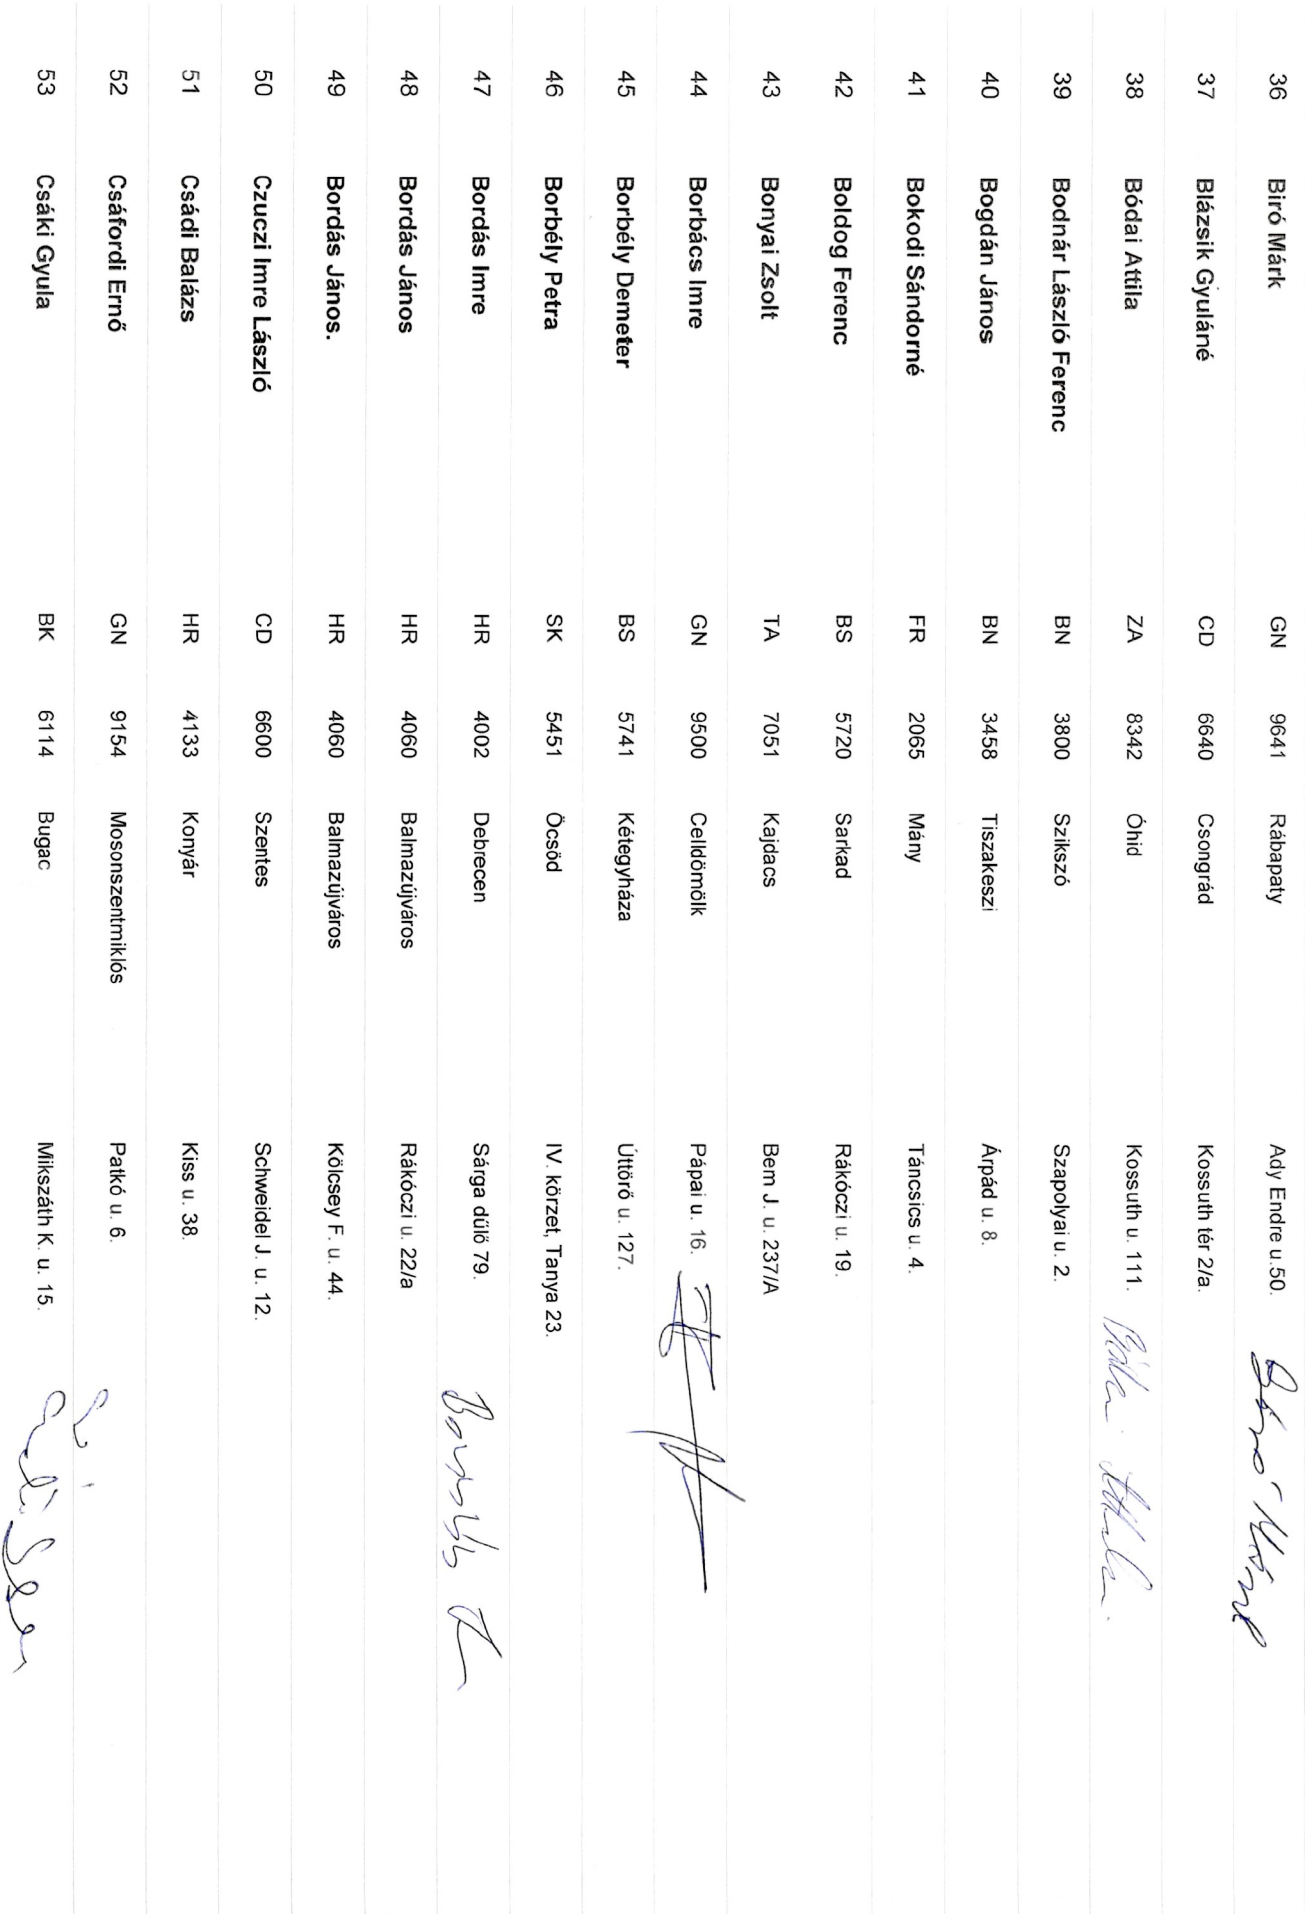 36 Biró Márk GN 9641 Rábapaty Ady Endre u.50. Biró Márk
37 Blázsik Gyuláné CD 6640 Csongrád Kossuth tér 2/a.
38 Bódai Attila ZA 8342 Óhid Kossuth u. 111. Bódai Attila
39 Bodnár László Ferenc BN 3800 Szikszó Szapolyai u. 2.
40 Bogdán János BN 3458 Tiszakeszi Árpád u. 8.
41 Bokodi Sándorné FR 2065 Mány Táncsics u. 4.
42 Boldog Ferenc BS 5720 Sarkad Rákóczi u. 19.
43 Bonyai Zsolt TA 7051 Kajdacs Bem J. u. 237/A
44 Borbács Imre GN 9500 Celldömölk Pápai u. 16.
45 Borbély Demeter BS 5741 Kétegyháza Úttörő u. 127.
46 Borbély Petra SK 5451 Öcsöd IV. körzet, Tanya 23.
47 Bordás Imre HR 4002 Debrecen Sárga dűlő 79.
48 Bordás János HR 4060 Balmazújváros Rákóczi u. 22/a
49 Bordás János. HR 4060 Balmazújváros Kölcsey F. u. 44.
50 Czuczi Imre László CD 6600 Szentes Schweidel J. u. 12.
51 Csádi Balázs HR 4133 Konyár Kiss u. 38.
52 Csáfordi Ernő GN 9154 Mosonszentmiklós Patkó u. 6.
53 Csáki Gyula BK 6114 Bugac Mikszáth K. u. 15.